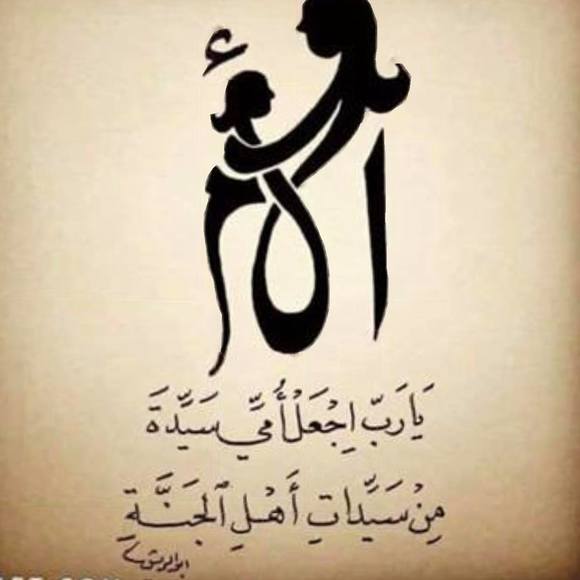 الأم
يَا رَبّ اِجْعَلْ أُمِّي سَيِّدَةَ
مِنْ سَيِّدَاتِ أَهْلِ الْجَنَّةِ